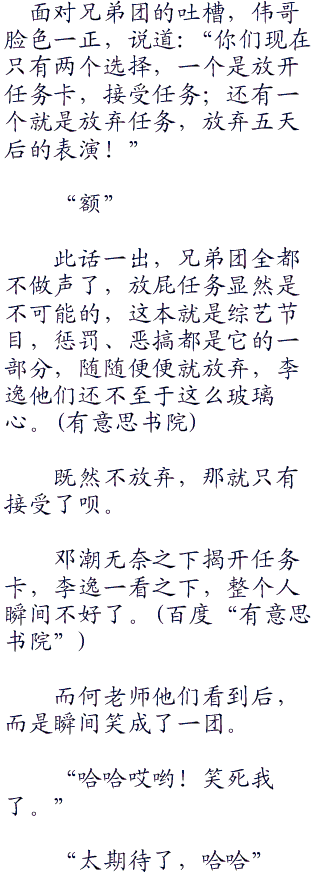 面对兄弟团的吐槽，伟哥
脸色一正，说道：“你们现在
只有两个选择，一个是放开
任务卡，接受任务；还有一
个就是放弃任务，放弃五天
后的表演！”
“额”
此话一出，兄弟团全都
不做声了，放屁任务显然是
不可能的，这本就是综艺节
目，惩罚、恶搞都是它的一
部分，随随便便就放弃，李
逸他们还不至于这么玻璃
心。(有意思书院)
既然不放弃，那就只有
接受了呗。
邓潮无奈之下揭开任务
卡，李逸一看之下，整个人
瞬间不好了。(百度“有意思
书院”)
而何老师他们看到后，
而是瞬间笑成了一团。
“哈哈哎哟！笑死我
了。”
“太期待了，哈哈”